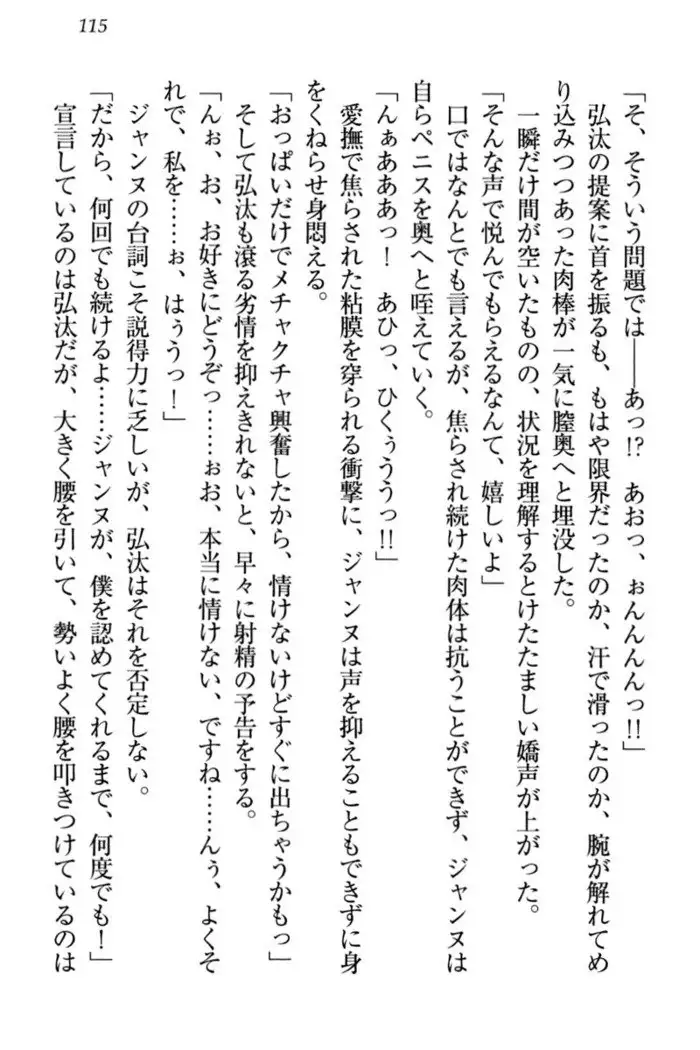 115
「そ、そういう問題では――あっ!? あおっ、ぉんんんんっ!!」
弘汰の提案に首を振るも、もはや限界だったのか、汗で滑ったのか、腕が解れてめ
り込みつつあった肉棒が一気に膣奥へと埋没した。
一瞬だけ間が空いたものの、状況を理解するとけたたましい嬌声が上がった。
「そんな声で悦んでもらえるなんて、嬉しいよ」
口ではなんとでも言えるが、焦らされ続けた肉体は抗うことができず、ジャンヌは
自らペニスを奥へと咥えていく。
「んぁあああっ! あひっ、ひくぅううっ!!」
愛撫で焦らされた粘膜を穿られる衝撃に、ジャンヌは声を抑えることもできずに身
をくねらせ身悶える。
「おっぱいだけでメチャクチャ興奮したから、情けないけどすぐに出ちゃうかもっ」
そして弘汰も滾る劣情を抑えきれないと、早々に射精の予告をする。
「んぉ、お、お好きにどうぞっ……ぉお、本当に情けない、ですね……んぅ、よくそ
れで、私を……ぉ、はぅうっ!」
ジャンヌの台詞こそ説得力に乏しいが、弘汰はそれを否定しない。
「だから、何回でも続けるよ……ジャンヌが、僕を認めてくれるまで、何度でも!」
宣言しているのは弘汰だが、大きく腰を引いて、勢いよく腰を叩きつけているのは